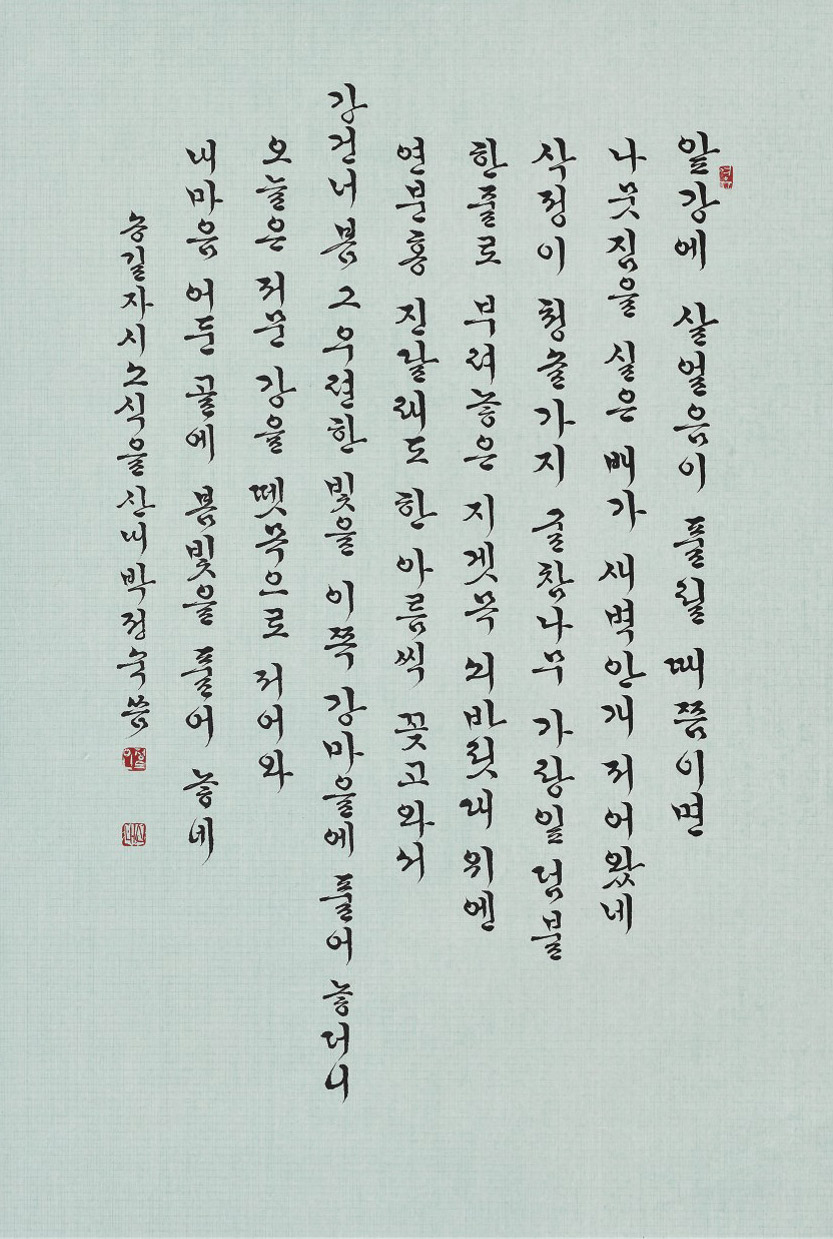 앞강에 살얼음이 풀릴 때쯤이면
나뭇짐을 실은 배가 새벽안개 저어왔네
삭정이 칡줄가지 굴참나무 가랑잎 덤불
한줄로 부려놓은 지겟목 쇠바릿대 위엔
연분홍 진달래도 한 아름씩 꽃고와서
강건너 봄 그 우련한 빛을 이쪽 강마을에 풀어 놓더니
오늘은 저문 강을 뗏목으로 저어와
내마음 어둔 골에 봄빛을 풀어 놓네
송길자 시 소식을 산내 박정숙 씀